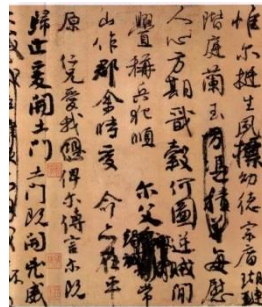 惟尔挺生夙標幼德宗廟瑚璉
階庭蘭玉方憑積善每慰
人心方期戩穀何圖逆賊閒
釁稱兵犯順尔父竭誠常
山作郡余時受命亦在平
原仁兄愛我俾尔傳言尔既
歸止爰開土門土門既開凶威